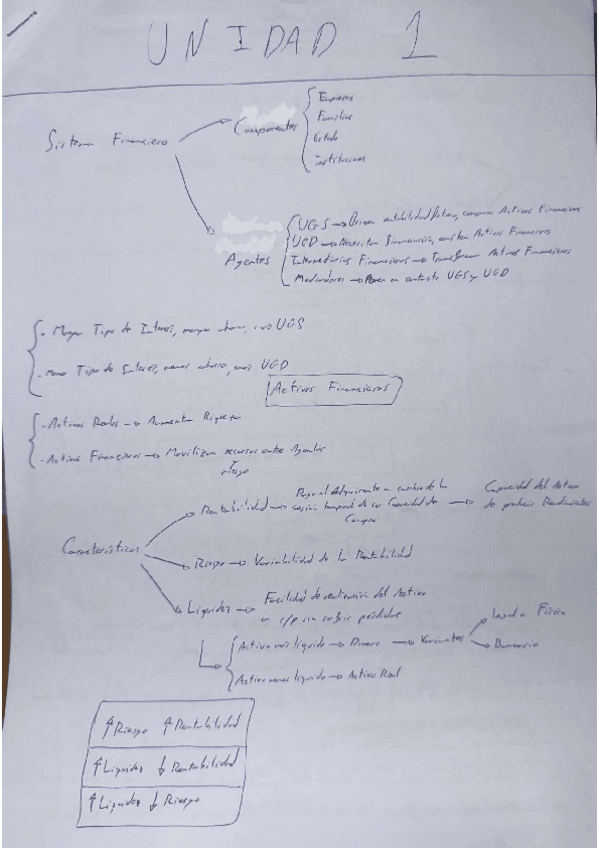 UNIDAD 1
Sistema Financiero → Componentes
Empresas
Familias
Estado
instituciones
Agentes
UGS → Desean rentabilidad, compran Activos Financieros
UGD → Necesitan Financiación, emiten Activos Financieros
Intermediarios Financieros → Transforman Activos Financieros
Mediadores → Ponen en contacto UGS y UGD
- Mayor Tipo de Interes, mayor ahorro, más UGS
- Menor Tipo de Interes, menor ahorro, más UGD
Activos Financieros
- Activos Reales → Aumentan Riqueza
- Activos Financieros → Movilizan recursos entre Agentes
riesgo
Características
Rentabilidad → Pago al Adquirente a cambio de la
cesión temporal de su Capacidad de
Compra
→ Capacidad del Activo
de producir Rendimientos
Riesgo → Variabilidad de la Rentabilidad
Liquidez → Facilidad de realización del Activo
a c/p sin sufrir pérdidas
Activo más líquido → Dinero → Variantes
Legal o Físico
Bancario
Activo menos líquido → Activo Real
↑ Riesgo ↑ Rentabilidad
↑ Liquidez ↓ Rentabilidad
↑ Liquidez ↓ Riesgo